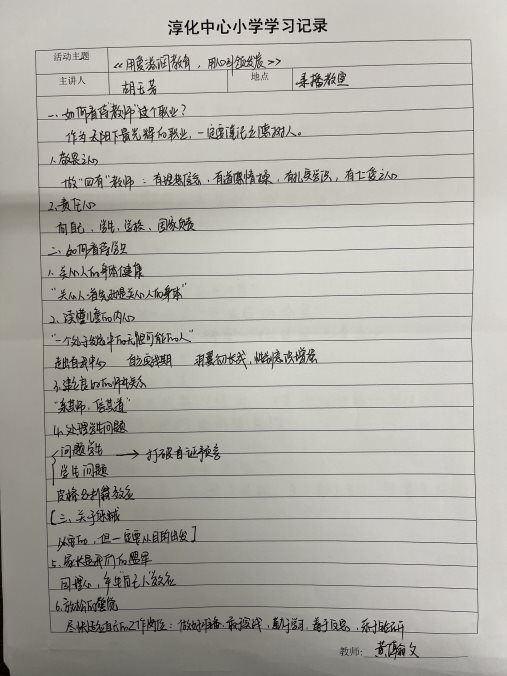 淳化中心小学学习记录
活动主题 《用爱滋润教育，用心引领发展》
主讲人 胡玉芳 地点 录播教室
一、如何看待“教师”这个职业？
作为太阳下最光辉的职业，一定要谨记立德树人。
1、敬畏之心
做“四有”教师：有理想信念，有道德情操，有扎实学识，有仁爱之心
2、责任心
对自己、学生、学校、国家负责
二、如何看待学生
1、关心人的身体健康
“关心人首先就是关心人的身体”
2、读懂儿童的内心
“一个处于成长中的无限可能的人”
走出自我中心 自立实践期 羽翼初长成，性别意识增强
3、建立良好的师生关系
“亲其师，信其道”
4、处理学生问题
问题学生 → 打破自证预言
学生问题
皮格马利翁效应
[三、关于惩戒
必要的，但一定要从目的出发]
5、家长是我们的盟军
同理心，“自己人”效应
6、
尽快适应自己的工作岗位：做好准备、敢于实践、勤于学习、善于反思、乐于
教师：黄翰文